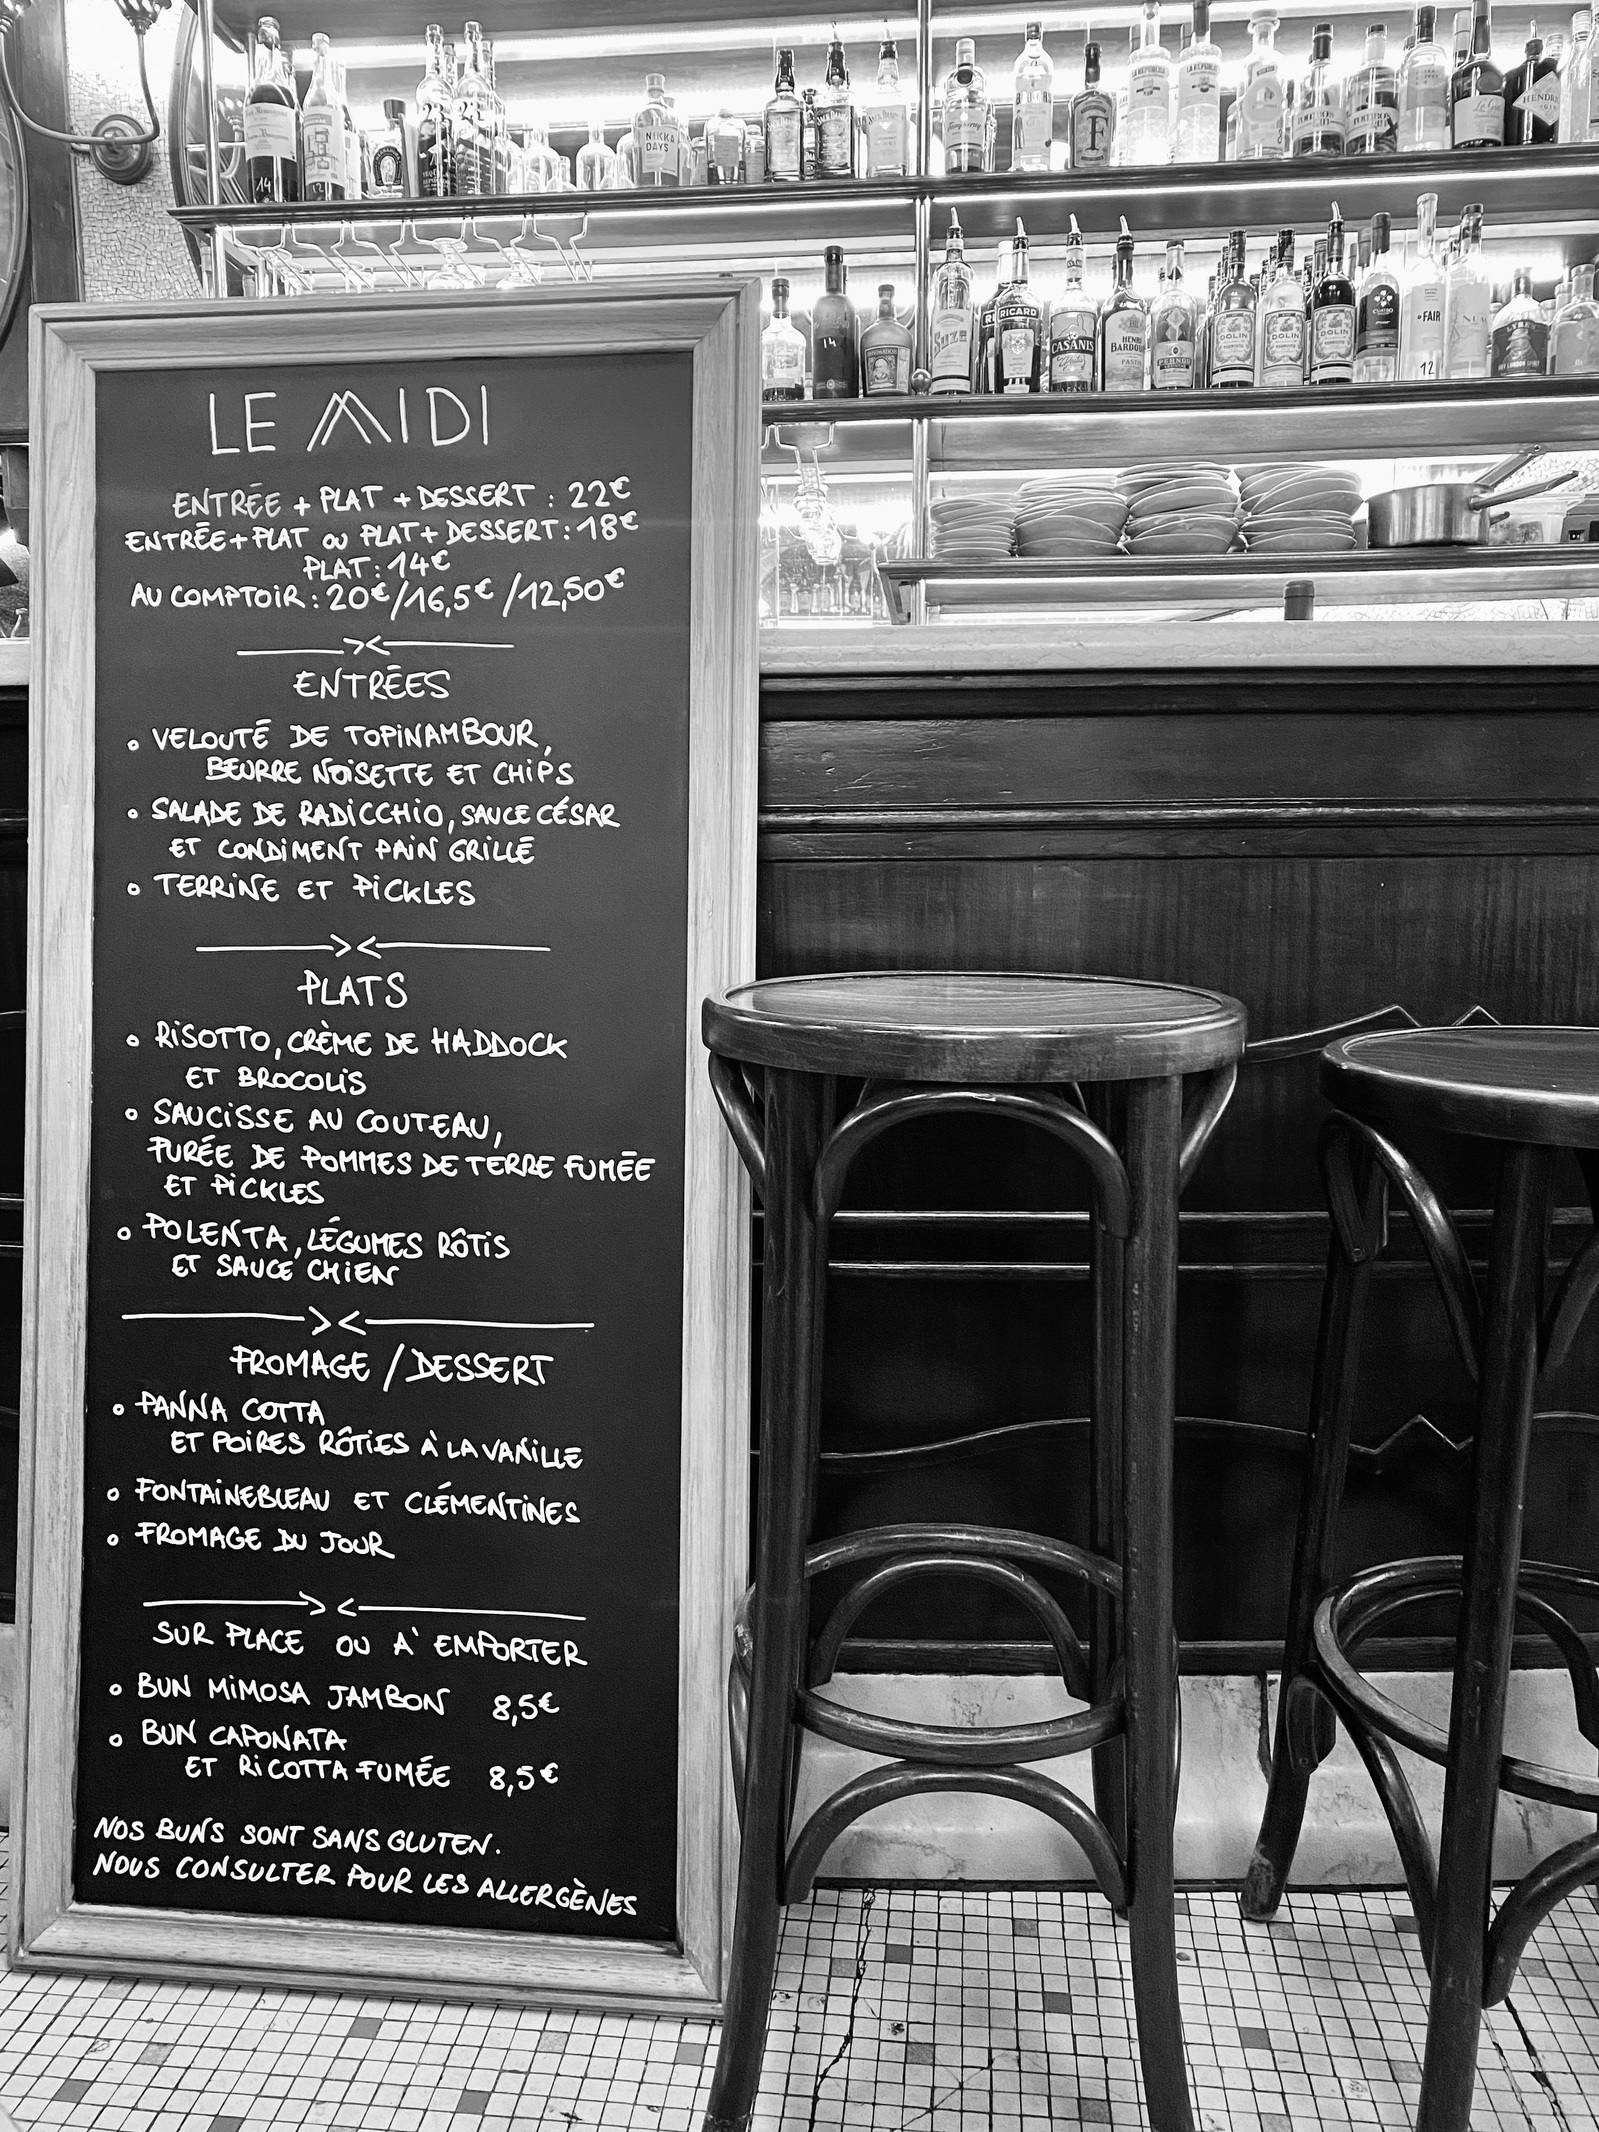 LE MIDI
ENTRÉE + PLAT + DESSERT : 22€
ENTRÉE + PLAT OU PLAT + DESSERT : 18€
PLAT : 14€
AU COMPTOIR : 20€/16,5€/12,50€
ENTRÉES
VELOUTÉ DE TOPINAMBOUR,
BEURRE NOISETTE ET CHIPS
SALADE DE RADICCHIO, SAUCE CÉSAR
ET CONDIMENT PAIN GRILLÉ
TERRINE ET PICKLES
PLATS
RISOTTO, CRÈME DE HADDOCK
ET BROCOLIS
SAUCISSE AU COUTEAU,
PURÉE DE POMMES DE TERRE FUMÉE
ET PICKLES
POLENTA, LÉGUMES RÔTIS
ET SAUCE CHIEN
FROMAGE / DESSERT
PANNA COTTA
ET POIRES RÔTIES À LA VANILLE
FONTAINEBLEAU ET CLÉMENTINES
FROMAGE DU JOUR
SUR PLACE OU À EMPORTER
BUN MIMOSA JAMBON 8,5€
BUN CAPONATA
ET RICOTTA FUMÉE 8,5€
NOS BUNS SONT SANS GLUTEN.
NOUS CONSULTER POUR LES ALLERGÈNES
14
12
NIKKA
DAYS
JACK DANIEL'S
F
LA REPUBLICA
LA REPUBLICA
HENDRI
14
SUZE
RICARD
CASANIS
HENRI
BARDOUIN
PERNOD
DOLIN
DOLIN
DOLIN
CUATRO
FAIR
12